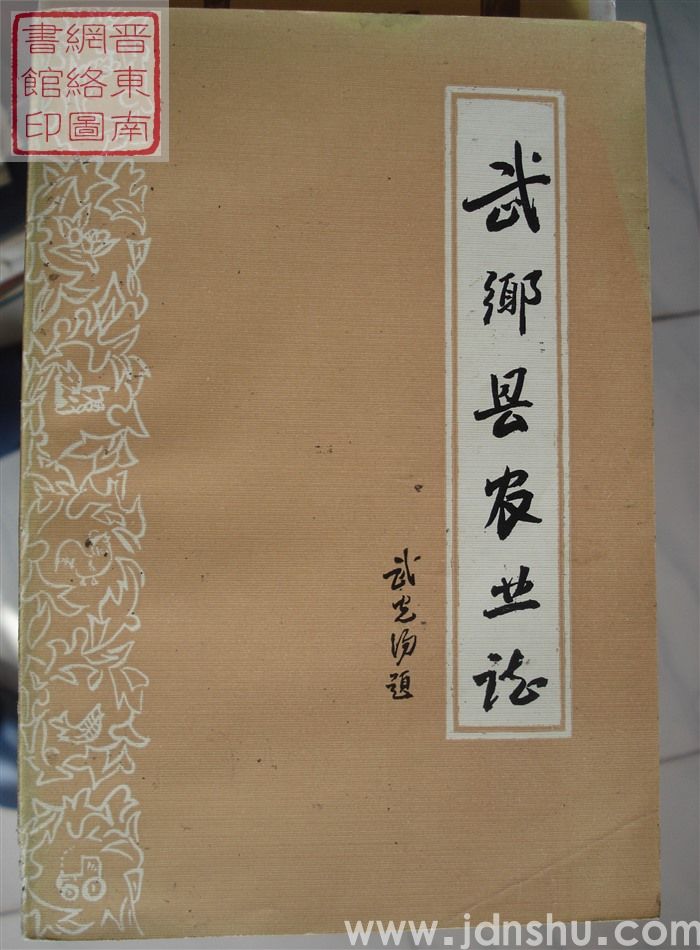 晋東南
網絡圖
書館印
武鄉县农业誌
武光汤题
www.jdnshu.com